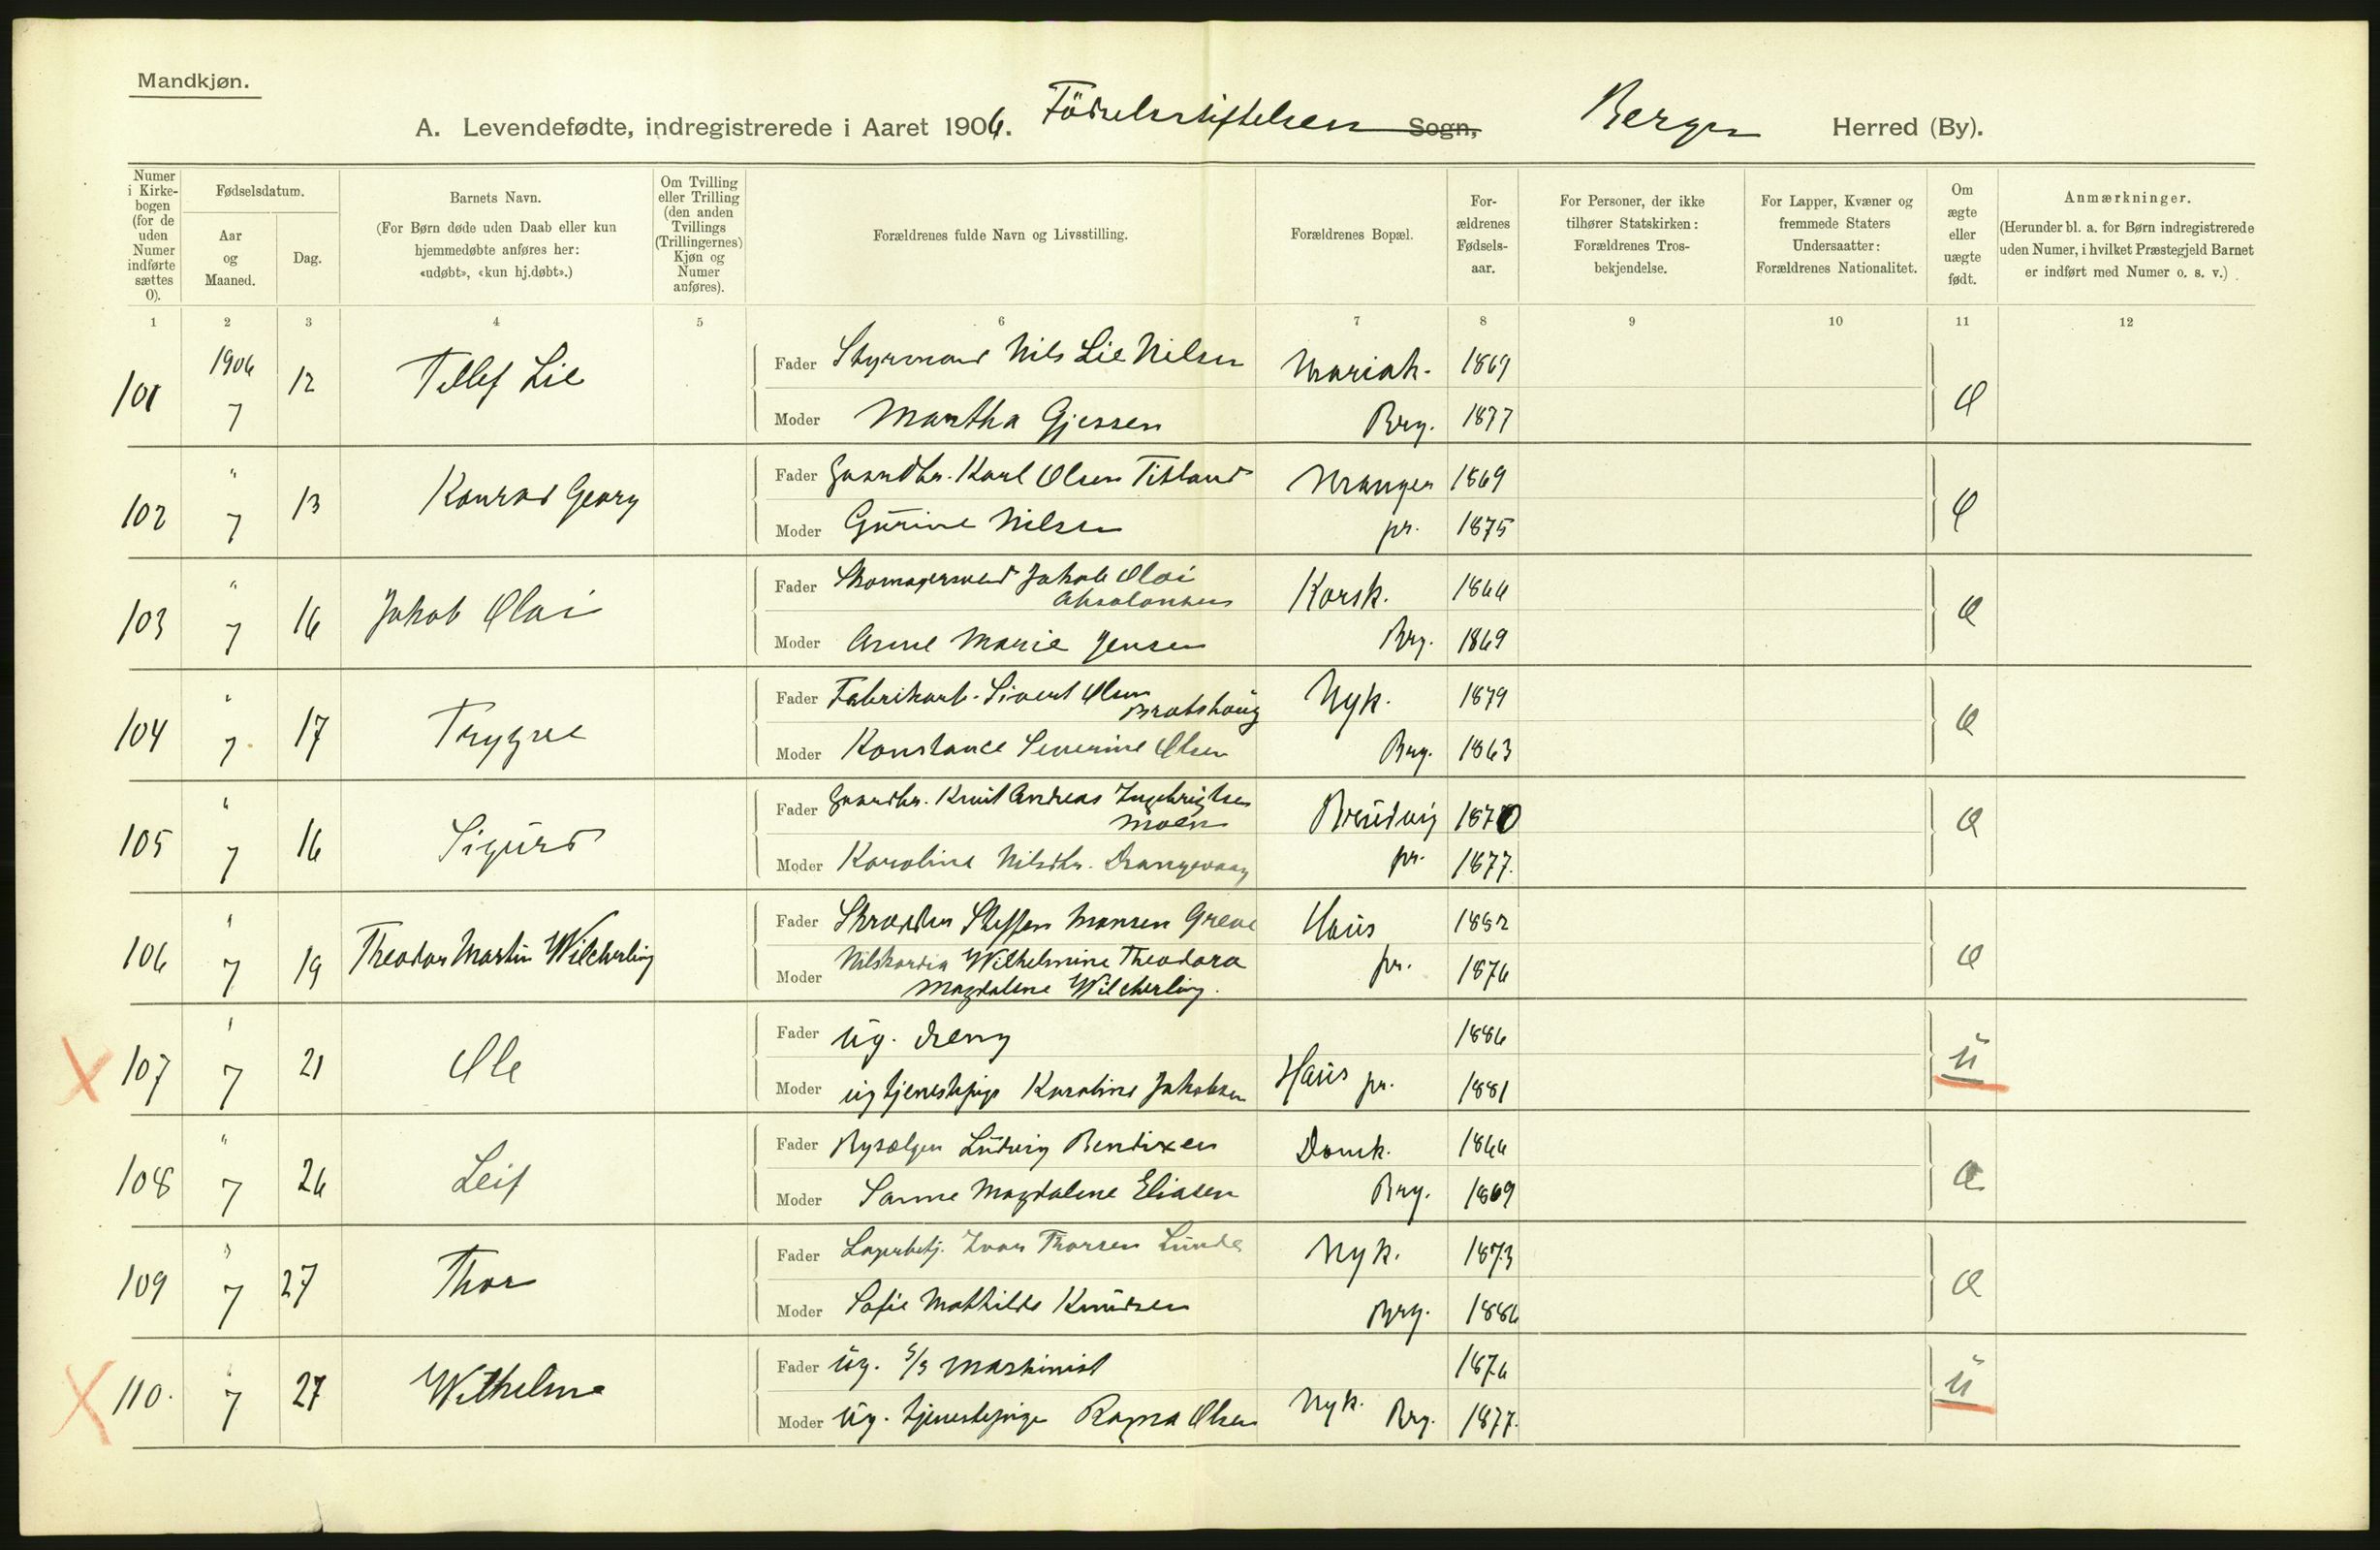 Mandkjøn.
A. Levendefødte, indregistrerede i Aaret 1906. Födselsstiftelsen Sogn, Bergen Herred (By).
Numer i Kirke-bogen (for de uden Numer indførte sættes 0).
Fødselsdatum.
Aar og Maaned.
Dag.
Barnets Navn.
(For Børn døde uden Daab eller kun hjemmedøbte anføres her: «udøbt», «kun hj.døbt».)
Om Tvilling eller Trilling (den anden Tvillings (Trillingernes) Kjøn og Numer anføres).
Forældrenes fulde Navn og Livsstilling.
Forældrenes Bopæl.
For-ældrenes Fødsels-aar.
For Personer, der ikke tilhører Statskirken: Forældrenes Tros-bekjendelse.
For Lapper, Kvæner og fremmede Staters Undersaatter: Forældrenes Nationalitet.
Om ægte eller uægte født.
Anmærkninger.
(Herunder bl. a. for Børn indregistrerede uden Numer, i hvilket Præstegjeld Barnet er indført med Numer o. s. v.)
1 2 3 4 5 6 7 8 9 10 11 12
101 1906 7 12 Tellef Lie Fader Styrmand Nils Lie Nilsen Mariak. 1869 Æ
Moder Martha Gjessen Brg. 1877
102 " 7 13 Konrad Georg Fader Gaardbr. Karl Olsen Titland Manger 1869 Æ
Moder Gurine Nilsen pr. 1875
103 " 7 16 Jakob Olai Fader Skomagersvend Jakob Olai Absalonsen Korsk. 1866 Æ
Moder Anne Marie Jensen Brg. 1869
104 " 7 17 Trygve Fader Fabrikarb. Sivert Olsen Bratshaug Nyk. 1879 Æ
Moder Konstance Severine Olsen Brg. 1863
105 " 7 16 Sigurd Fader Gaardbr. Knut Andreas Ingebrigtsen Moen 1870 Æ
Moder Karoline Nilsdtr. Drangevaag pr. 1877.
106 " 7 19 Theodor Martin Wilcherling Fader Skrædder Steffen Monsen Greve Haus 1882 Æ
Moder Wilhelmine Theodora Magdalene Wilcherling. pr. 1876
107 " 7 21 Ole Fader ug. dreng 1886 u
Moder ug tjenestepige Karoline Jakobsen Haus pr. 1881
108 " 7 26 Leif Fader Bysælger Ludvig Bendixen Domk. 1866 Æ
Moder Sanne Magdalene Eliasen Brg. 1869
109 " 7 27 Thor Fader Lagerbetj. Ivar Thorsen Lunde Nyk. 1873 Æ
Moder Sofie Mathilde Knudsen Brg. 1886
110. " 7 27 Wilhelm Fader ug. S/S Maskinist 1876 u
Moder ug. tjenestepige Ragna Olsen Nyk. Brg. 1877.